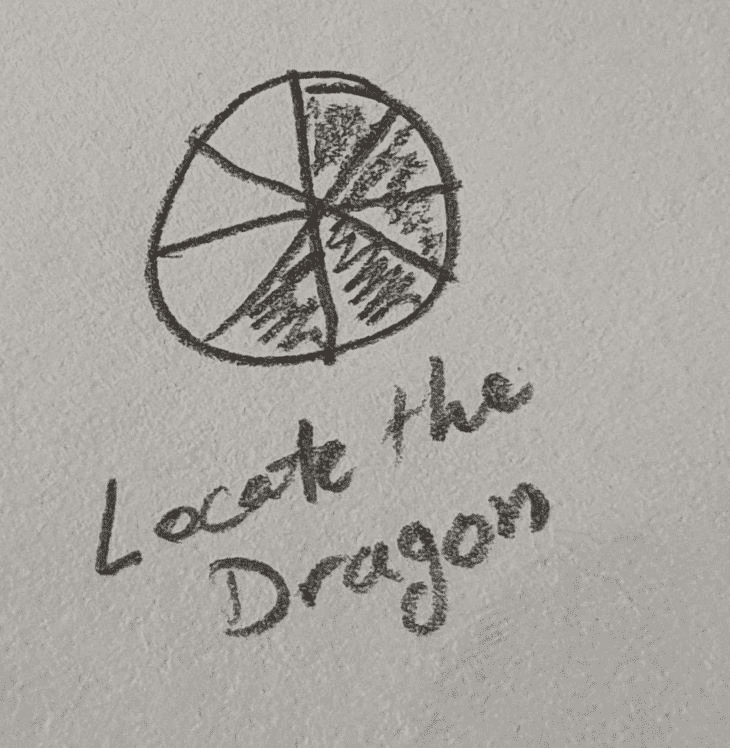 Locate the
Dragon